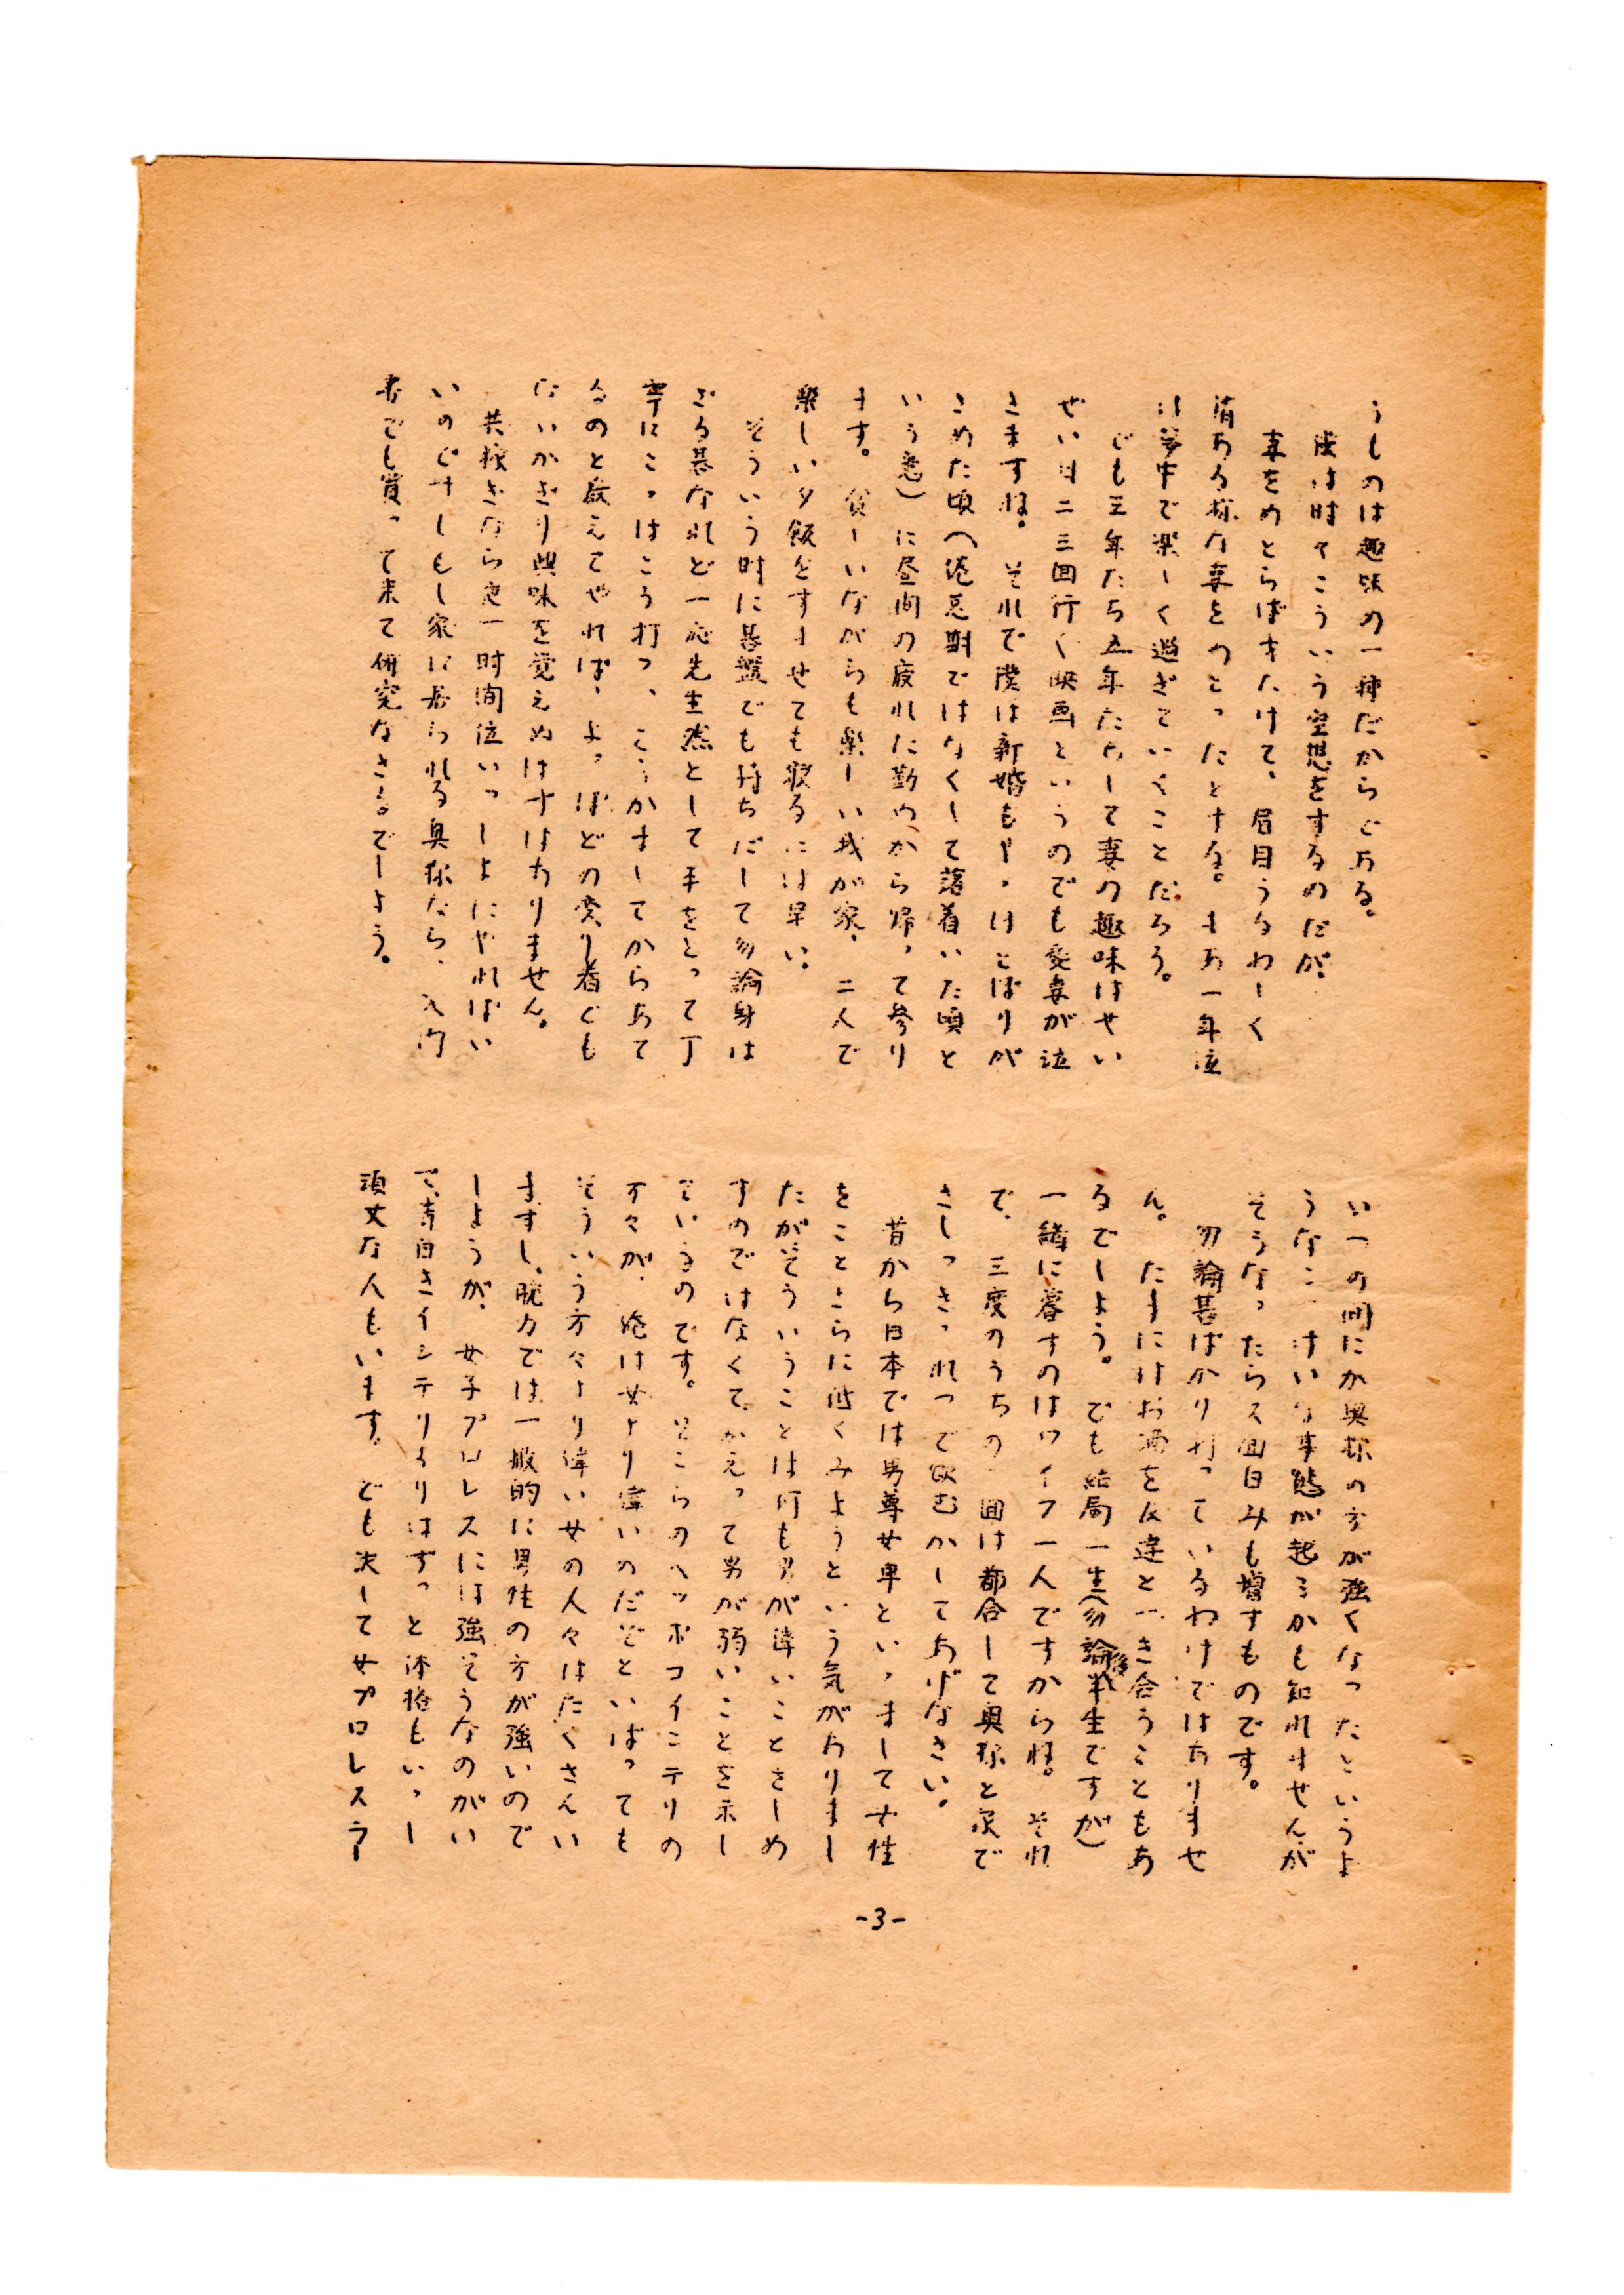 うものは趣味の一種だからである。
僕は時々こういう空想をするのだが、
妻をめとらば才たけて、眉目うるわしく
情ある様な妻をめとったとする。まあ一年位
は夢中で楽しく過ぎていくことだろう。
でも三年たち五年たちして妻の趣味はせい
ぜい月二三回行く映画というのでも愛妻が泣
きますね。それで僕は新婚もやっけとばりが
さめた頃(倦怠期ではなくして落着いた頃と
いう意)に昼間の疲れた勤めから帰って参り
ます。貧しいながらも楽しい我が家、二人で
楽しい夕飯をすませても寝るには早い。
そういう時に碁盤でも持ちだして勿論身は
ざる碁なれど一応先生然として手をとって丁
寧にこっはこう打つ、こうかましてからあて
るのと教えてやれば、よっぽどの変り者でも
ないかぎり興味を覚えぬはずはありません。
共稼ぎなら夜一時間位いっしょにやればい
いのですしもし家に居られる奥様なら、入門
書でも買って来て研究なさるでしょう。
いつの間にか奥様の方が強くなったというよ
うなこっけいな事態が起るかも知れませんが
そうなったら又面白みも増すものです。
勿論碁ばかり打っているわけではありませ
ん。たまにはお酒を友達とつき合うこともあ
るでしょう。でも結局一生(勿論後半生ですが)
一緒に暮すのはワイフ一人ですからね。それ
で、三度のうちの一回は都合して奥様と家で
さしつさされつで飲むかしてあげなさい。
昔から日本では男尊女卑といいまして女性
をことさらに低くみようという気がありまし
たがそういうことは何も男が偉いことをしめ
すのではなくて、かえって男が弱いことを示し
ているのです。そこらのヘッポコインテリの
方々が、俺は女より偉いのだぞといばっても
そういう方々より偉い女の人々はたくさんい
ますし、腕力では一般的に男性の方が強いので
しょうが、女子プロレスには強そうなのがい
て、青白きインテリよりはずっと体格もいいし
頑丈な人もいます。でも決して女プロレスラー
-3-